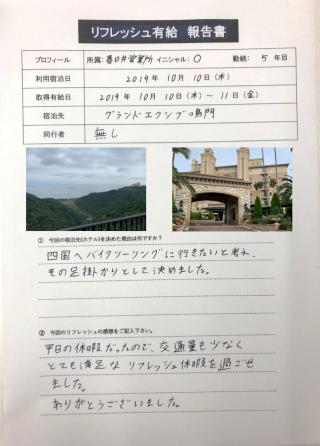 リフレッシュ有給 報告書
プロフィール 所属: 春日井営業所 イニシャル: O 勤続: 5 年目
利用宿泊日 2019年 10月 10日(木)
取得有給日 2019年 10月 10日(木)~11日(金)
宿泊先 グランドエクシブ鳴門
同行者 無し
① 今回の宿泊先(ホテル)を決めた理由は何ですか?
四国へバイクツーリングに行きたいと考え、
その足掛かりとして決めました。
② 今回のリフレッシュの感想をご記入下さい。
平日の休暇だったので、交通量も少なく
とても満足な リフレッシュ休暇を過ごせ
ました。
ありがとうございました。